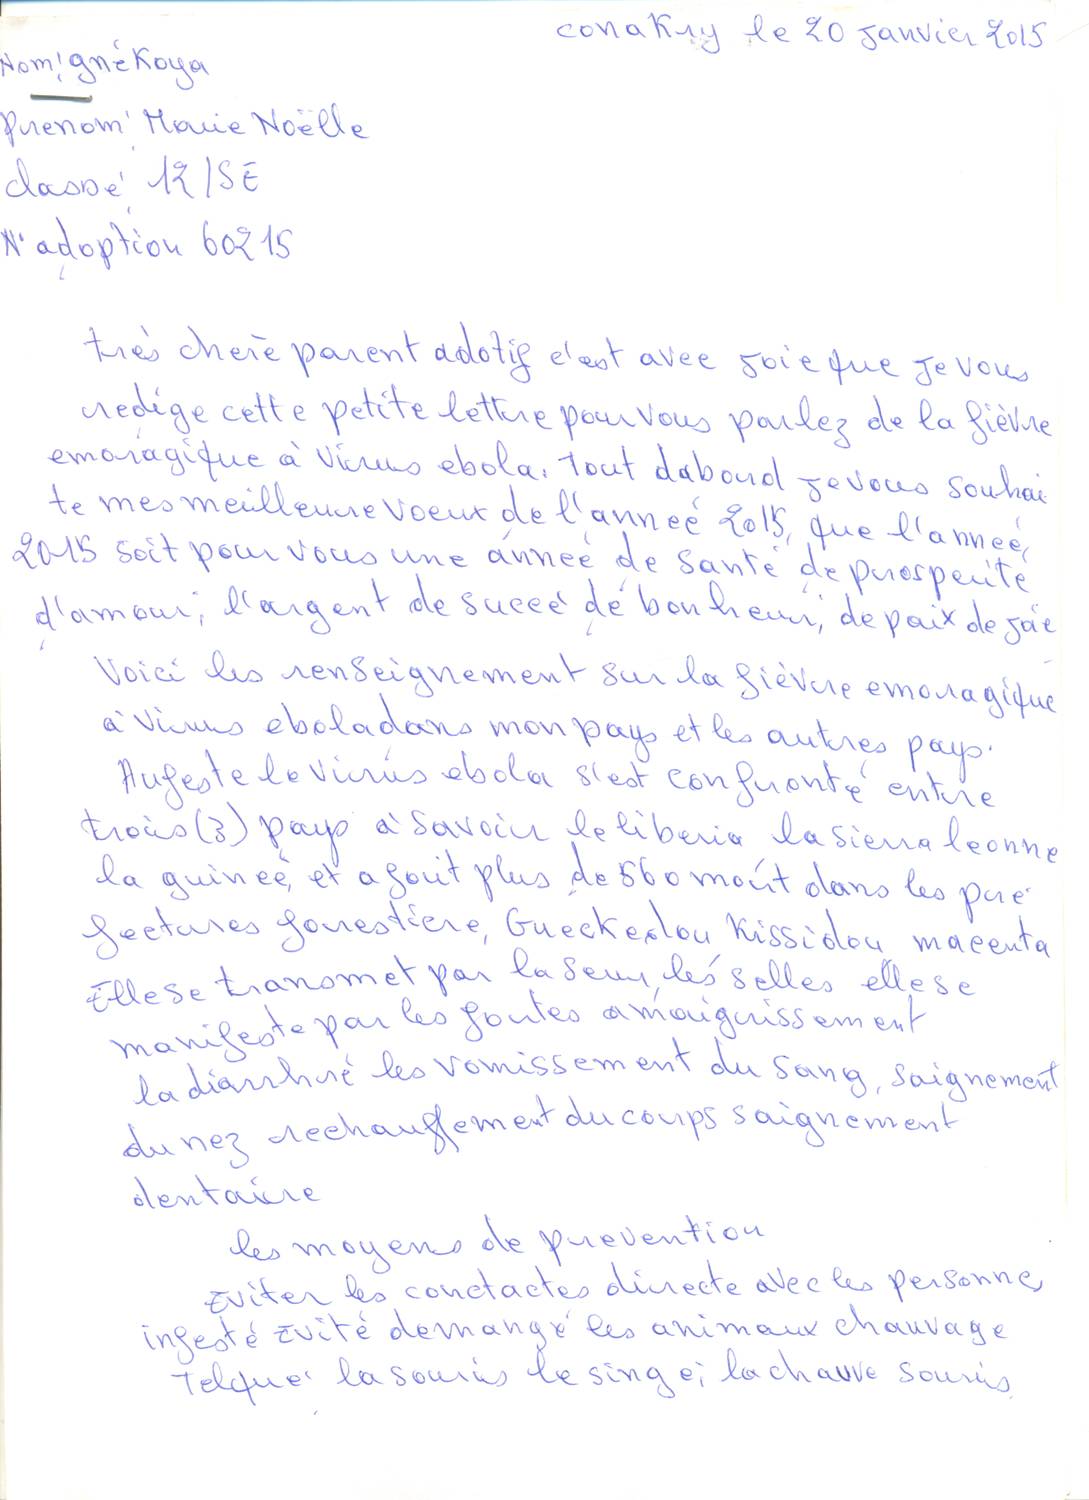 conakry le 20 janvier 2015
Nom: gnékoya
Prenom: Marie Noëlle
classe: 12/SE
N° adoption 60215
très cherè parent adotif c'est avec joie que je vous
redige cette petite lettre pour vous parlez de la fièvre
emoragique à virus ebola. Tout dabord je vous souhai
te mes meilleure voeux de l'anneé 2015, que l'anneé,
2015 soit pour vous une anneé de santé de prosperité
d'amour, l'argent de succé de bonheur, de paix de joie
Voici les renseignement sur la fièvre emoragique
à virus ebola dans mon pays et les autres pays.
Aufeste le virus ebola s'est confronté entre
trois (3) pays à savoir le liberia la sierra leonne
la guineé, et a fait plus de 560 mort dans les pre
fectures forestière, Gueckedou Kissidou macenta
Elle se transmet par la seur, les selles elle se
manifeste par les fortes amaigrissement
la diarrhré les vomissement du sang, saignement
du nez rechauffement du corps saignement
dentaire
les moyens de prevention
Eviter les conctactes directe avec les personne,
infesté Evité demangé les animaux chauvage
Telque: la souris le singe, la chauve souris